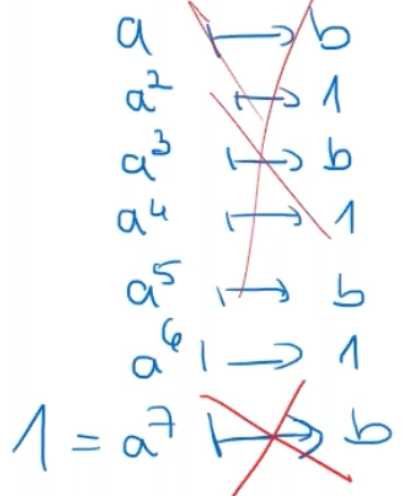 a ↦ b
a² ↦ 1
a³ ↦ b
a⁴ ↦ 1
a⁵ ↦ b
a⁶ ↦ 1
1 = a⁷ ↦ b